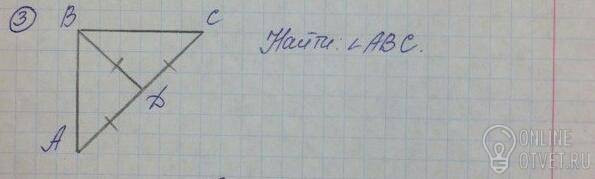 3
B
C
Найти: ∠ABC.
D
A
ONLINE
OTVET.RU